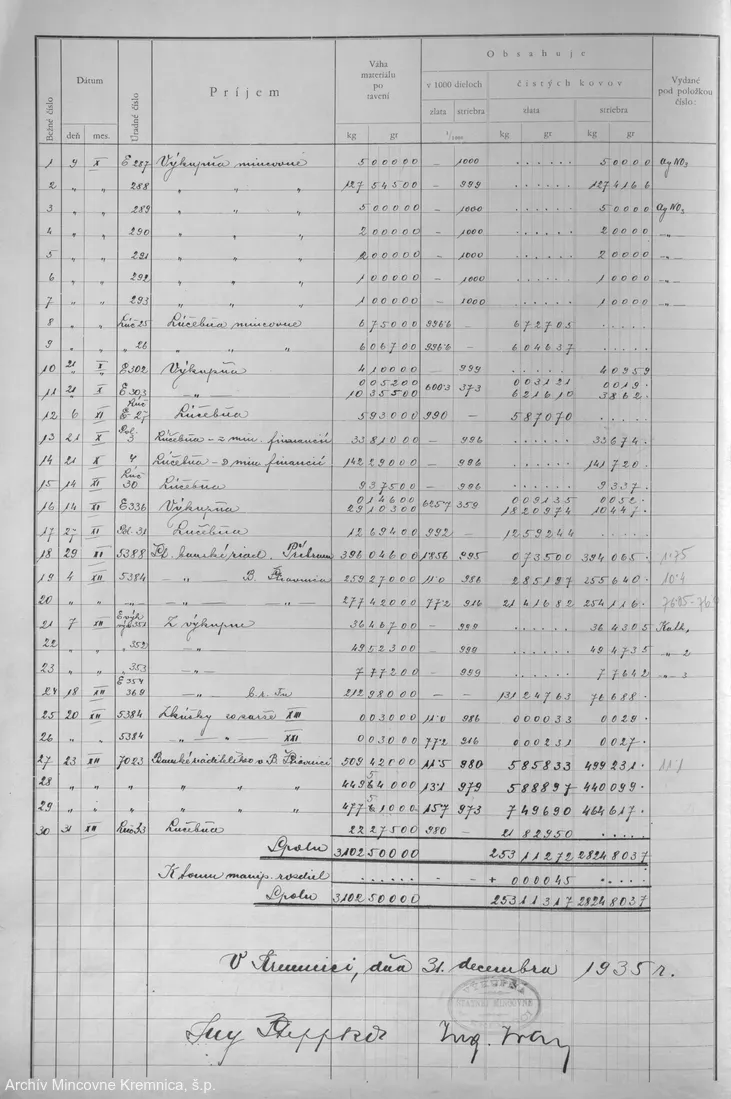 Obsahuje
Bežné číslo
Dátum
deň mes.
Uradné číslo
Príjem
Váha materiálu po tavení
kg gr
v 1000 dieloch
zlata striebra
1/1000
čistých kovov
zlata striebra
kg gr kg gr
Vydané pod položkou číslo:
1 9 X E 287 Výkupňa mincovne 500000 – 1000 ...... 50000 AgNO3
2 „ „ 288 „ „ „ 127 54500 – 999 ...... 127416 6
3 „ „ 289 „ „ „ 500000 – 1000 ...... 50000 AgNO3
4 „ „ 290 „ „ „ 200000 – 1000 ...... 20000 –„–
5 „ „ 291 „ „ „ 200000 – 1000 ...... 20000 –„–
6 „ „ 292 „ „ „ 100000 – 1000 ...... 10000 –„–
7 „ „ 293 „ „ „ 100000 – 1000 ...... 10000 –„–
8 „ „ Lúč 25 Lúčebňa mincovne 675000 996·6 – 672705 .....
9 „ „ „ 26 „ „ „ 606700 996·6 – 604637 .....
10 21 X E 302 Výkupňa 410000 – 999 ...... 40959
11 21 X E 303 –„– 005200 600·3 373 003121 0019·
1035500 621610 3862·
12 6 XI Lúč 27 Lúčebňa 593000 990 – 587070 .....
13 21 X 3 Lúčebňa – z min. financií 3381000 – 996 ...... 33674·
14 21 X 4 Lúčebňa – z min. financií 14229000 – 996 ...... 141720·
15 14 XI Lúč 30 Lúčebňa 937500 – 996 ...... 9337·
16 14 XI E 336 Výkupňa 014600 625·7 359 009135 0052·
2910300 1820974 10447·
17 27 XI 31 Lúčebňa 1269400 992 – 1259244 .....
18 29 XI 5388 banské riad. Príbram 39604600 1·856 995 073500 394065· 1·75
19 4 XII 5384 –„– B. Štiavnica 25927000 11·0 986 285197 255640· 10·4
20 „ „ –„– –„– –„– 27742000 77·2 916 2141682 254116·
21 7 XII 351 Z výkupne 3646700 – 999 ...... 364305
22 „ 352 –„– 4952300 – 999 ...... 494735 „ 2
23 „ „ 353 –„– 777200 – 999 ...... 77642 –„– 3
24 18 XII 369 –„– 21298000 – – 13124763 76688·
25 20 XII 5384 XIII 003000 11·0 986 000033 0029·
26 „ „ 5384 –„– –„– XXI 003000 77·2 916 000231 0027·
27 23 XII 7023 Banské riaditeľstvo v B. Štiavnici 50942000 11·5 980 585833 499231· 11·1
28 „ „ „ „ „ „ 44954000 13·1 979 588897 440099·
29 „ „ „ „ „ „ 47751000 15·7 973 749690 464617·
30 31 XII Lúč 33 Lúčebňa 2227500 980 – 2182950 .....
Spolu 310250000 25311272 28248037
K tomu manip. rozdiel ...... – – + 000045 .....
Spolu 310250000 25311317 28248037
V Kremnici, dňa 31. decembra 1935 r.
Ing.
Ing.
Archív Mincovne Kremnica, š.p.